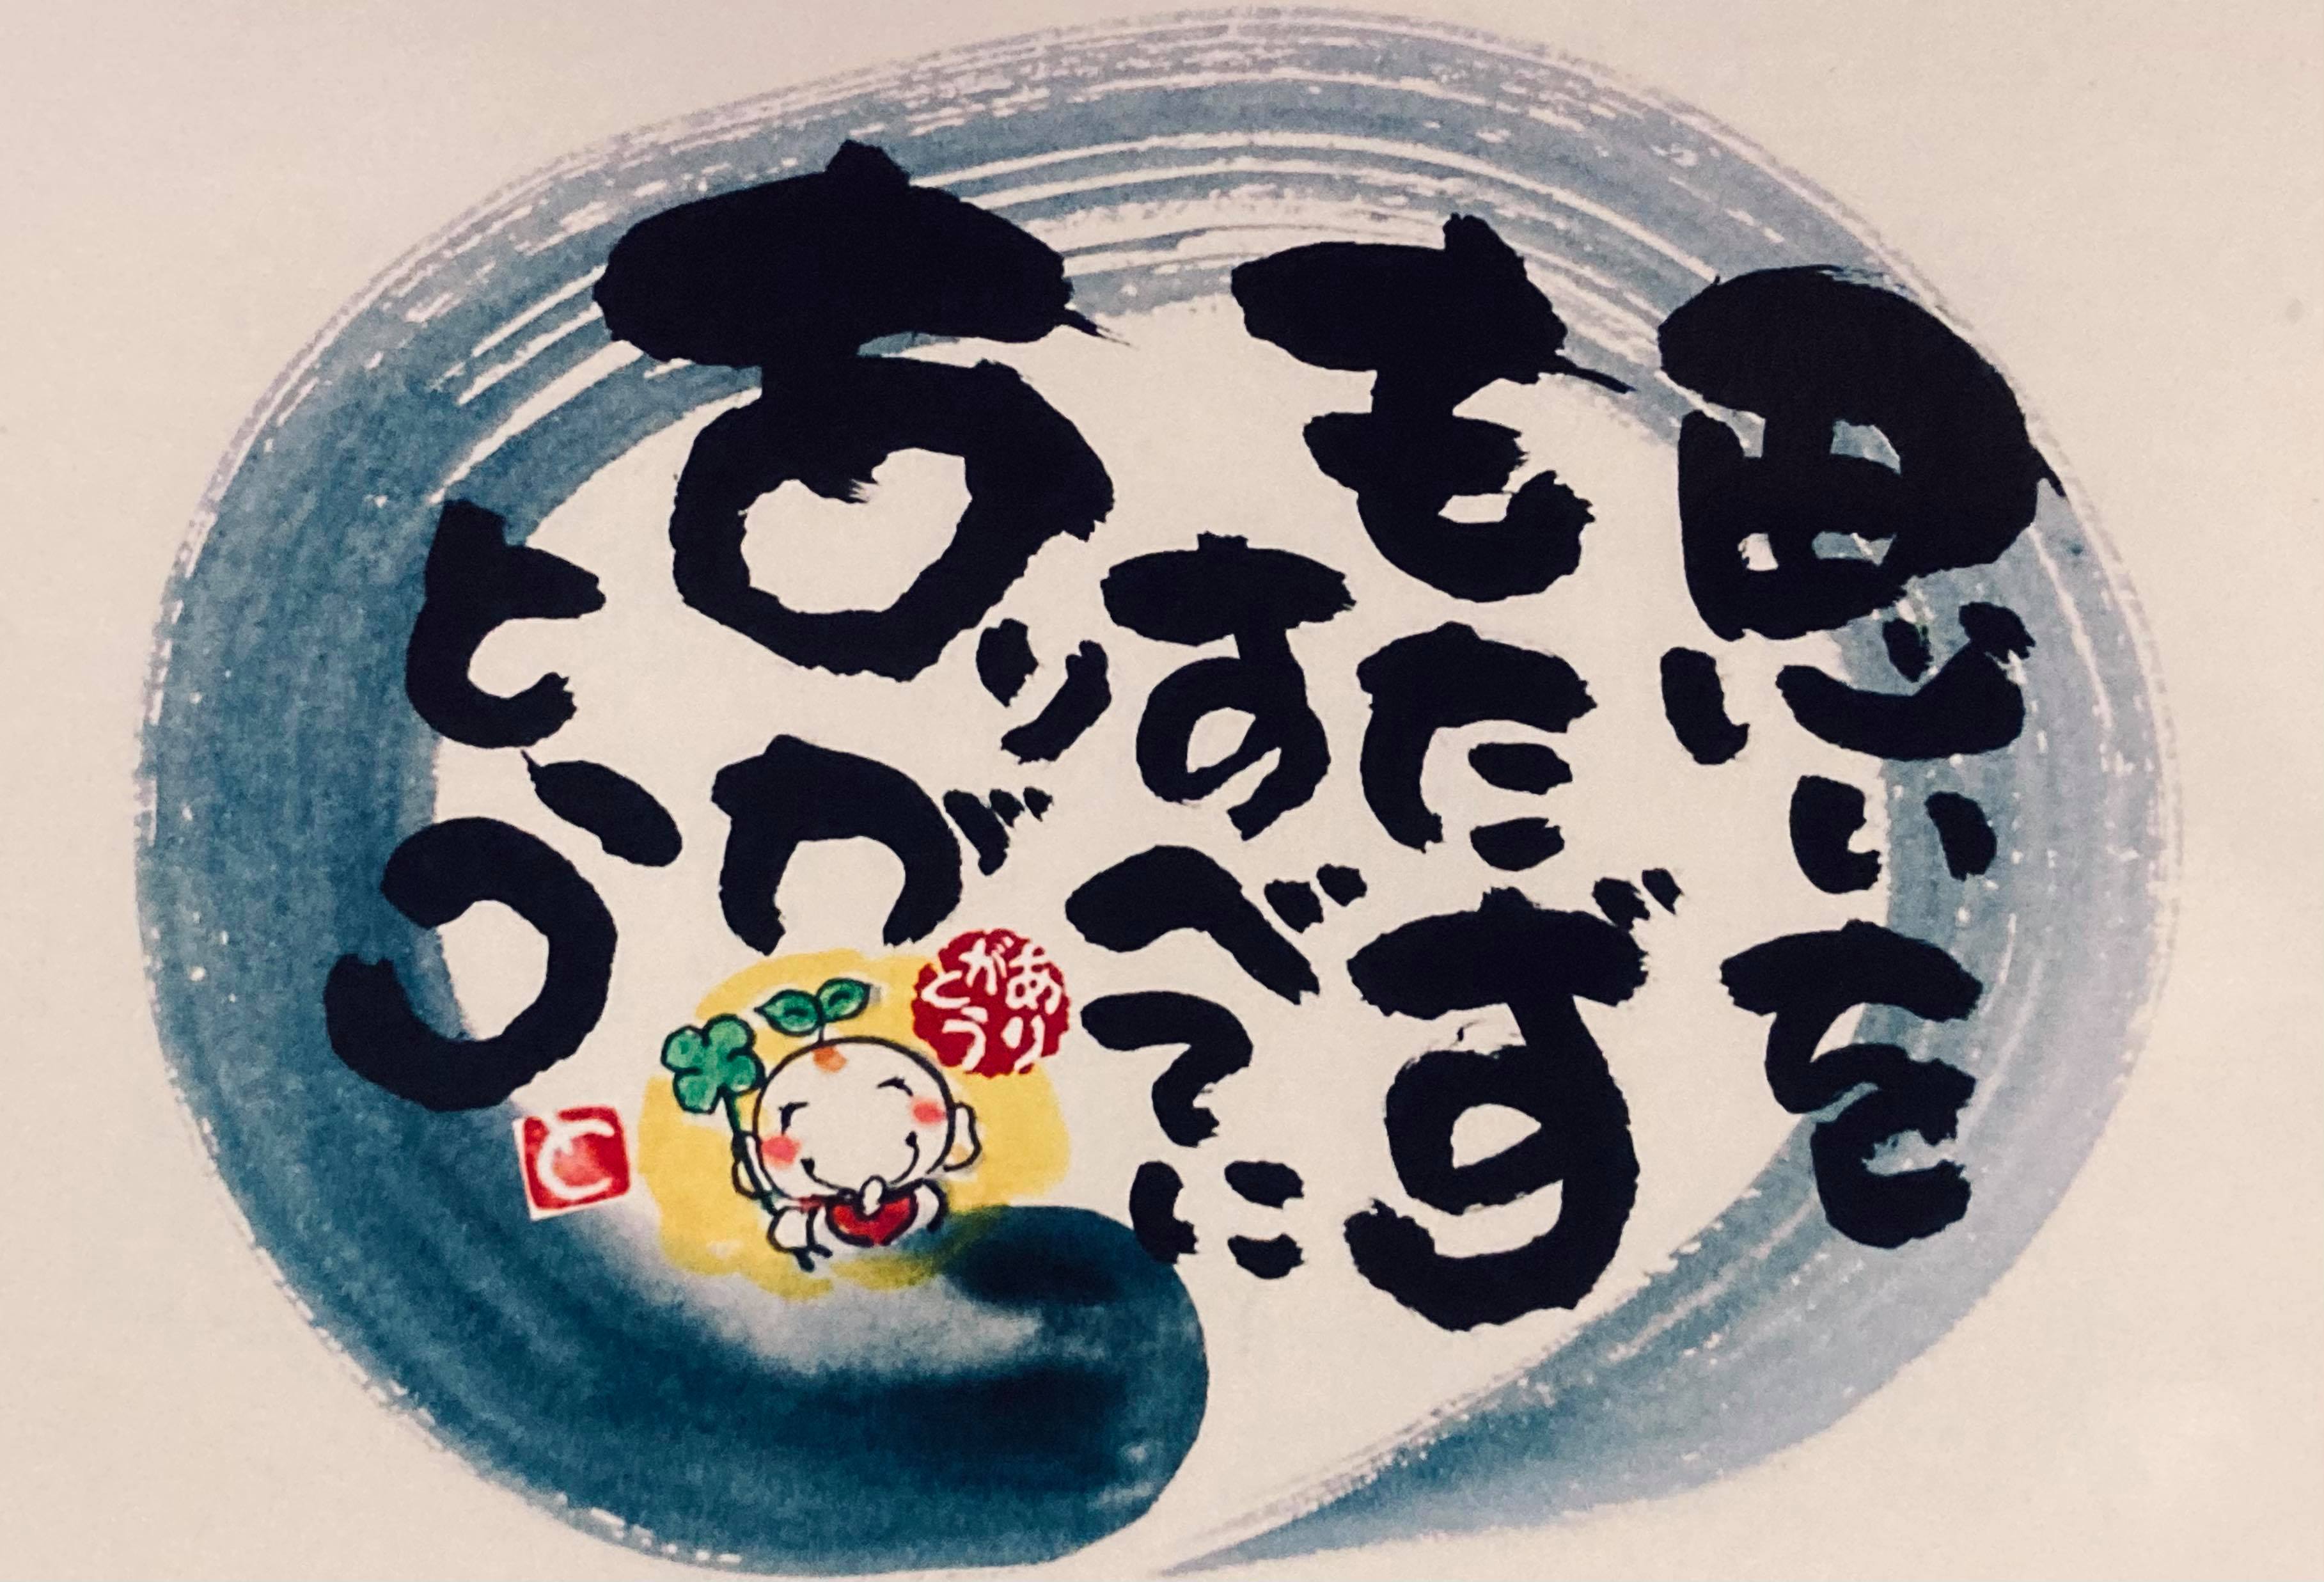 思いを
もたず
すべてに
ありが

とう
ありがとう
と